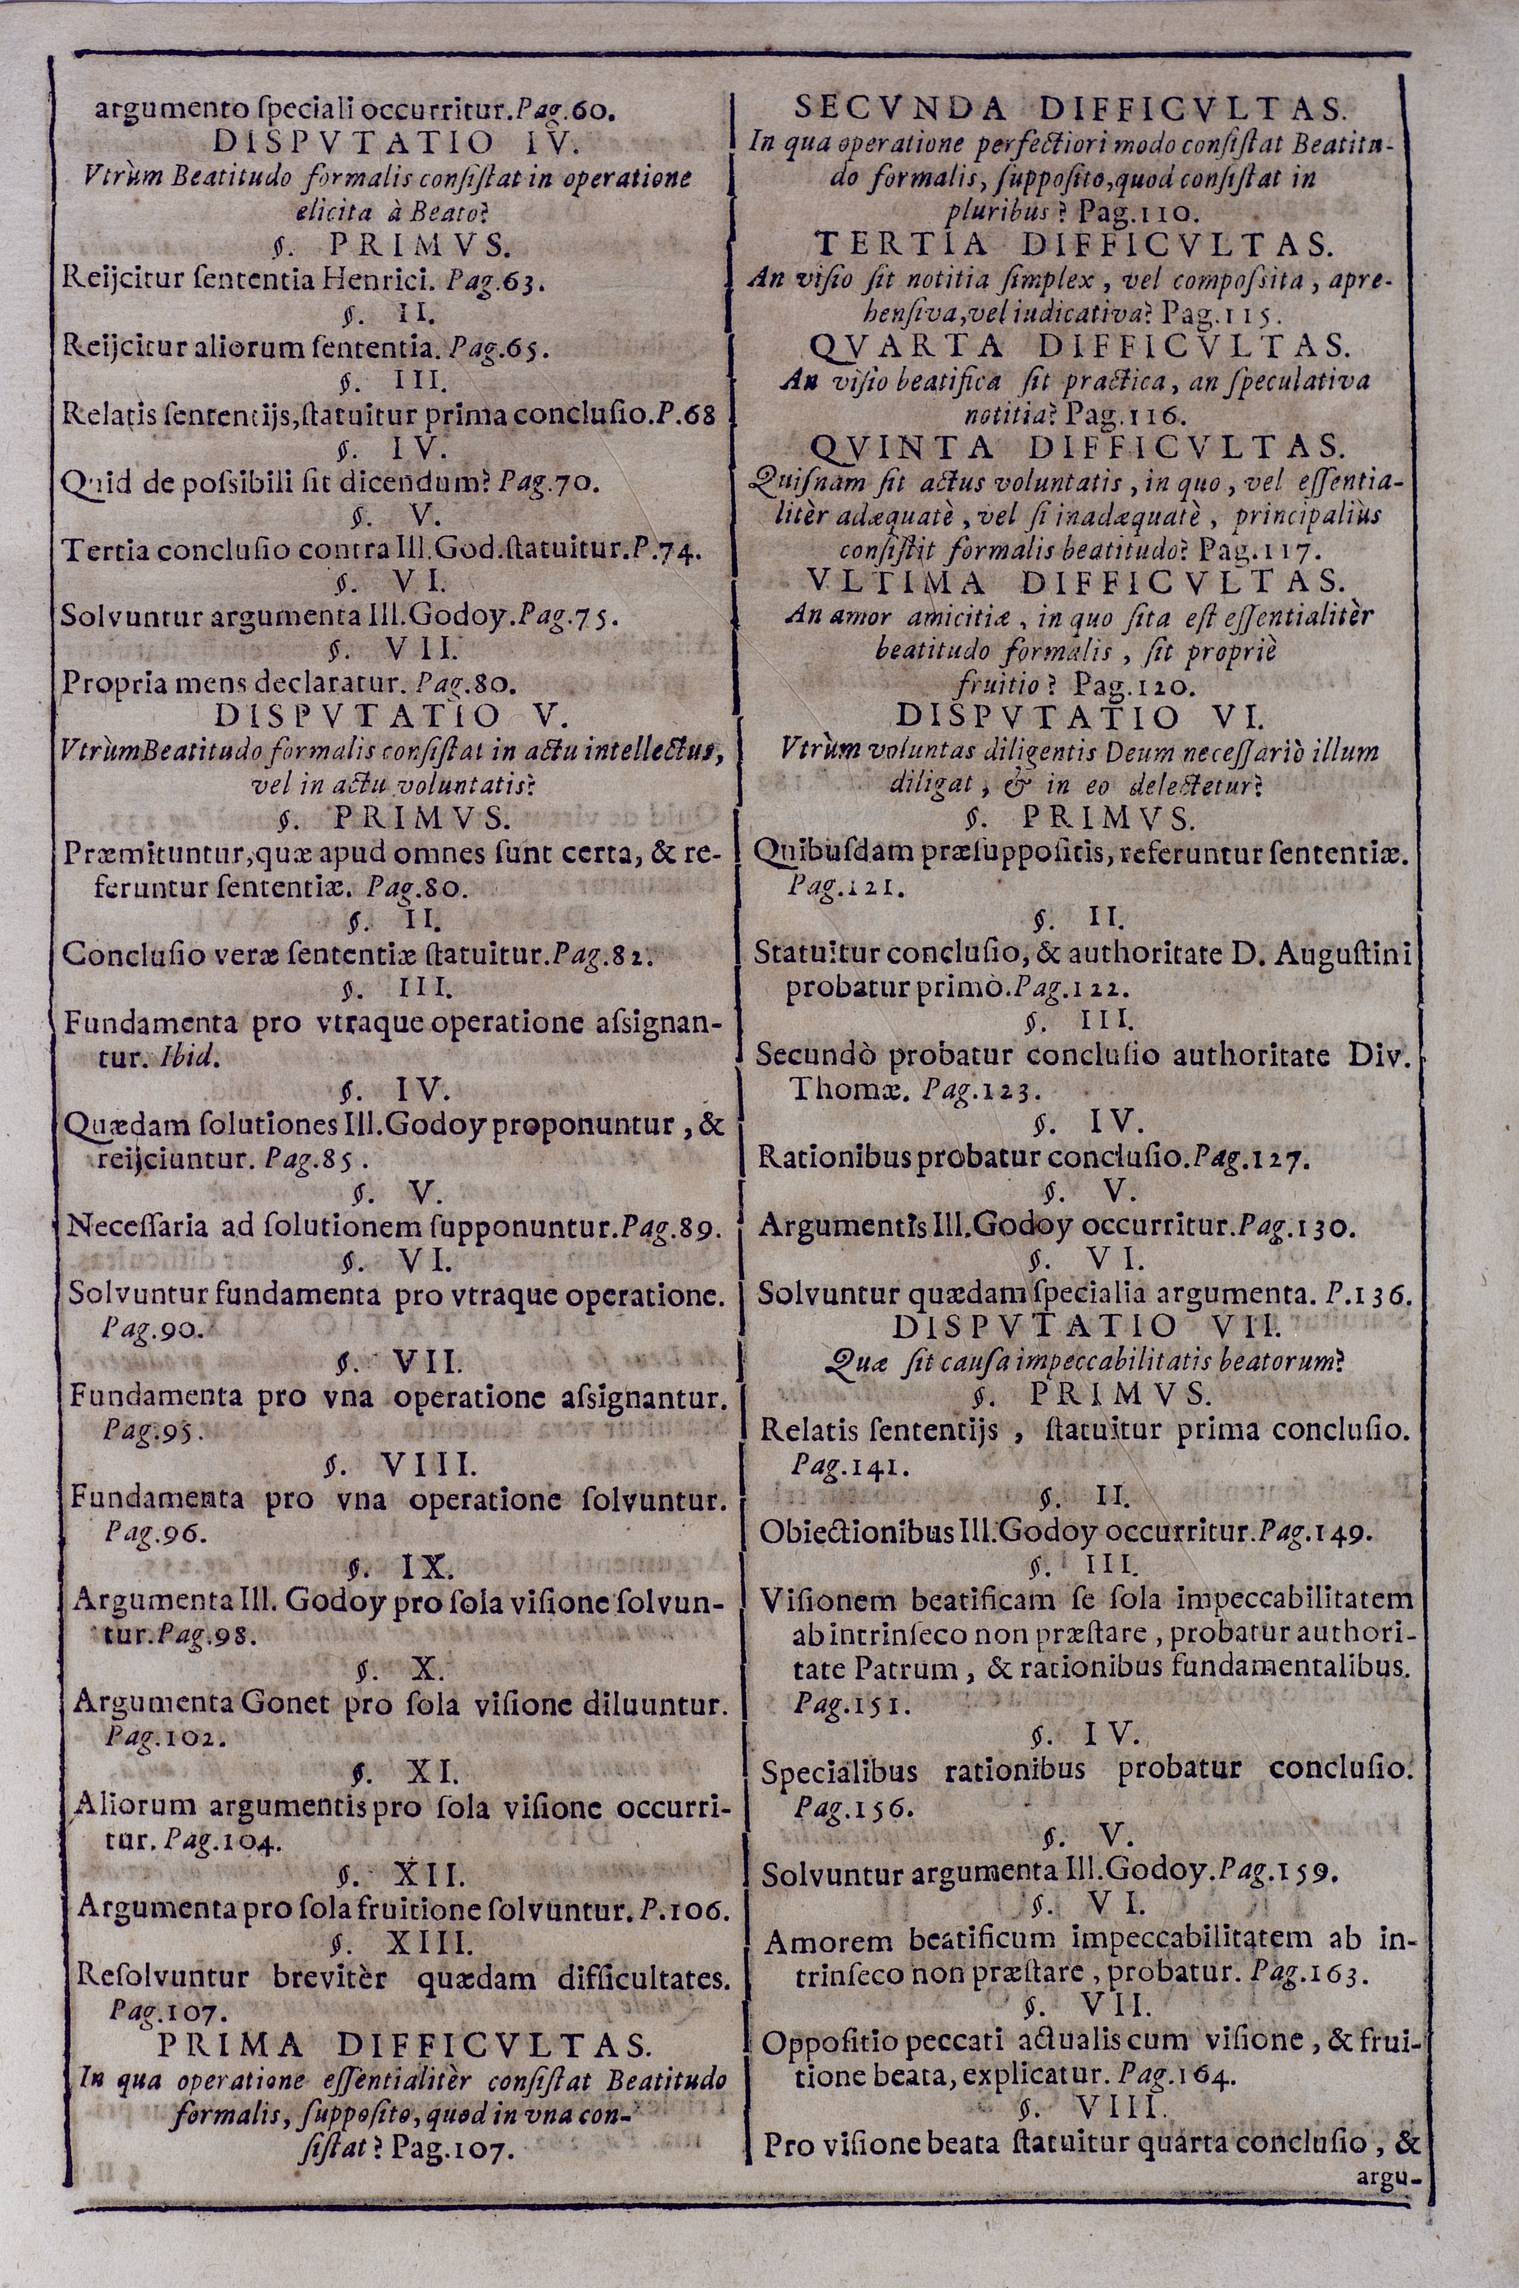 argumento ſpeciali occurritur. Pag.60.
DISPVTATIO IV.
Vtrùm Beatitudo formalis conſiſtat in operatione
elicita à Beato?
§. PRIMVS.
Reijcitur ſententia Henrici. Pag.63.
§. II.
Reijcitur aliorum ſententia. Pag.65.
§. III.
Relatis ſententijs, ſtatuitur prima concluſio. P.68
§. IV.
Quid de poſsibili ſit dicendum? Pag.70.
§. V.
Tertia concluſio contra Ill. God. ſtatuitur. P.74.
§. VI.
Solvuntur argumenta Ill. Godoy. Pag.75.
§. VII.
Propria mens declaratur. Pag.80.
DISPVTATIO V.
Vtrùm Beatitudo formalis conſiſtat in actu intellectus,
vel in actu voluntatis?
§. PRIMVS.
Præmituntur, quæ apud omnes ſunt certa, & re-
feruntur ſententiæ. Pag.80.
§. II.
Concluſio veræ ſententiæ ſtatuitur. Pag.82.
§. III.
Fundamenta pro vtraque operatione aſsignan-
tur. Ibid.
§. IV.
Quædam ſolutiones Ill. Godoy proponuntur, &
reijciuntur. Pag.85.
§. V.
Neceſſaria ad ſolutionem ſupponuntur. Pag.89.
§. VI.
Solvuntur fundamenta pro vtraque operatione.
Pag.90.
§. VII.
Fundamenta pro vna operatione aſsignantur.
Pag.95.
§. VIII.
Fundamenta pro vna operatione ſolvuntur.
Pag.96.
§. IX.
Argumenta Ill. Godoy pro ſola viſione ſolvun-
tur. Pag.98.
§. X.
Argumenta Gonet pro ſola viſione diluuntur.
Pag.102.
§. XI.
Aliorum argumentis pro ſola viſione occurri-
tur. Pag.104.
§. XII.
Argumenta pro ſola fruitione ſolvuntur. P.106.
§. XIII.
Reſolvuntur brevitèr quædam difficultates.
Pag.107.
PRIMA DIFFICVLTAS.
In qua operatione eſſentialitèr conſiſtat Beatitudo
formalis, ſuppoſito, quod in vna con-
ſiſtat? Pag.107.
SECVNDA DIFFICVLTAS.
In qua operatione perfectiori modo conſiſtat Beatitu-
do formalis, ſuppoſito, quod conſiſtat in
pluribus? Pag.110.
TERTIA DIFFICVLTAS.
An viſio ſit notitia ſimplex, vel compoſsita, apre-
henſiva, vel iudicativa? Pag.115.
QVARTA DIFFICVLTAS.
An viſio beatifica ſit practica, an ſpeculativa
notitia? Pag.116.
QVINTA DIFFICVLTAS.
Quiſnam ſit actus voluntatis, in quo, vel eſſentia-
litèr adæquatè, vel ſi inadæquatè, principaliùs
conſiſtit formalis beatitudo? Pag.117.
VLTIMA DIFFICVLTAS.
An amor amicitiæ, in quo ſita eſt eſſentialitèr
beatitudo formalis, ſit propriè
fruitio? Pag.120.
DISPVTATIO VI.
Vtrùm voluntas diligentis Deum neceſſariò illum
diligat, & in eo delectetur?
§. PRIMVS.
Quibuſdam præſuppoſitis, referuntur ſententiæ.
Pag.121.
§. II.
Statuitur concluſio, & authoritate D. Auguſtini
probatur primò. Pag.122.
§. III.
Secundò probatur concluſio authoritate Div.
Thomæ. Pag.123.
§. IV.
Rationibus probatur concluſio. Pag.127.
§. V.
Argumentis Ill. Godoy occurritur. Pag.130.
§. VI.
Solvuntur quædam ſpecialia argumenta. P.136.
DISPVTATIO VII.
Quæ ſit cauſa impeccabilitatis beatorum?
§. PRIMVS.
Relatis ſententijs, ſtatuitur prima concluſio.
Pag.141.
§. II.
Obiectionibus Ill. Godoy occurritur. Pag.149.
§. III.
Viſionem beatificam ſe ſola impeccabilitatem
ab intrinſeco non præſtare, probatur authori-
tate Patrum, & rationibus fundamentalibus.
Pag.151.
§. IV.
Specialibus rationibus probatur concluſio.
Pag.156.
§. V.
Solvuntur argumenta Ill. Godoy. Pag.159.
§. VI.
Amorem beatificum impeccabilitatem ab in-
trinſeco non præſtare, probatur. Pag.163.
§. VII.
Oppoſitio peccati actualis cum viſione, & frui-
tione beata, explicatur. Pag.164.
§. VIII.
Pro viſione beata ſtatuitur quarta concluſio, &
argu-